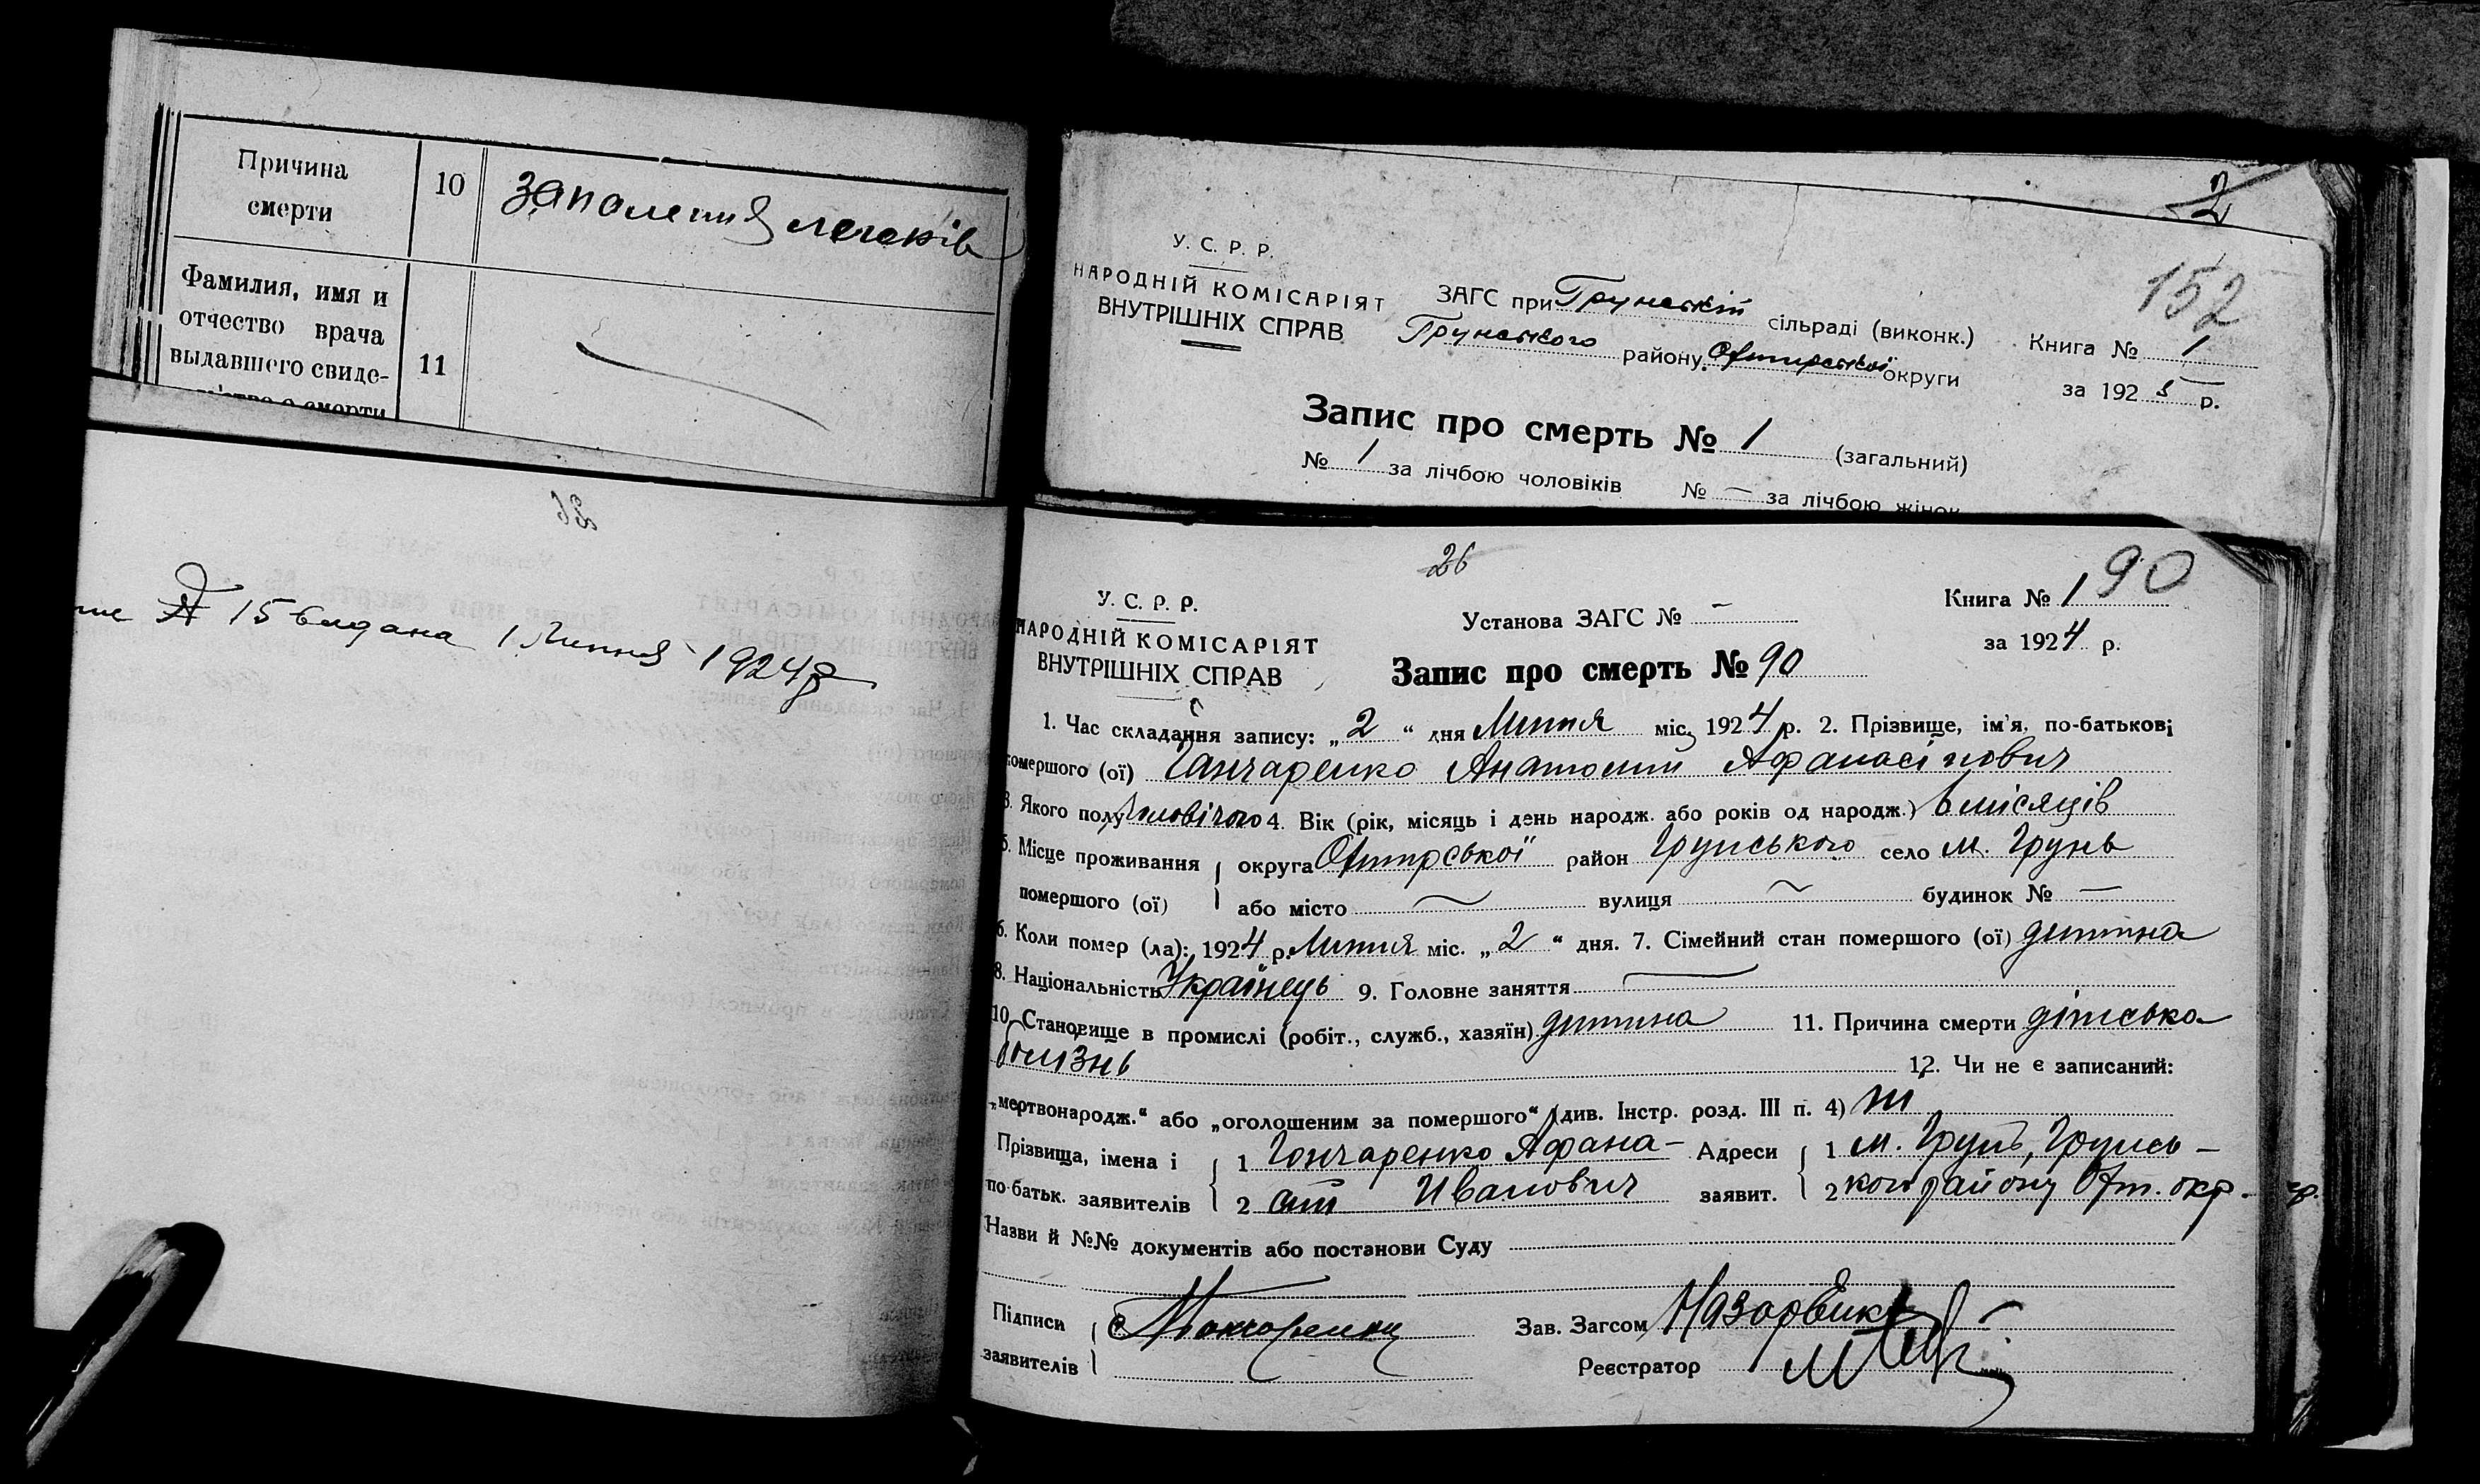 Причина смерти 10 запалення легенів
Фамилия, имя и
отчество врача
выдавшего свиде- 11
2
152
У. С. Р. Р.
НАРОДНІЙ КОМІСАРІЯТ
ВНУТРІШНІХ СПРАВ
ЗАГС при Грунській сільраді (виконк.)
Грунського району Охтирської округи
Книга № 1
за 1925 р.
Запис про смерть № 1 (загальний)
№ 1 за лічбою чоловіків № — за лічбою жінок
26
№ 15 видана 1 Липня 1924 р
26
90
У. С. Р. Р.
НАРОДНІЙ КОМІСАРІЯТ
ВНУТРІШНІХ СПРАВ
Установа ЗАГС № -
Книга № 1
за 1924 р.
Запис про смерть № 90
1. Час складання запису: „2“ дня Липня міс. 1924 р. 2. Прізвище, ім'я, по-батькові
помершого (ої) Ганчаренко Анатолий Афанасійович
3. Якого полу Чоловічого 4. Вік (рік, місяць і день народж. або років од народж.) 6 місяців
5. Місце проживання округа Охтирської район Грунського село м. Грунь
помершого (ої) або місто ~ вулиця ~ будинок № —
6. Коли помер (ла): 1924 р. Липня міс. „2“ дня. 7. Сімейний стан помершого (ої) дитина
8. Національність Українець 9. Головне заняття —
10. Становище в промислі (робіт., служб., хазяїн) дитина 11. Причина смерти дітська
болізнь 12. Чи не є записаний:
„мертвонародж.“ або „оголошеним за помершого“ (див. Інстр. розд. III п. 4) ні
Прізвища, імена і 1 Гончаренко Афана- Адреси 1 м. Грунь, Грунсь-
по-батьк. заявителів 2 сий Иванович заявит. 2 кого району Охт. окр.
Назви й №№ документів або постанови Суду
Підписи
заявителів
Зав. Загсом
Реєстратор